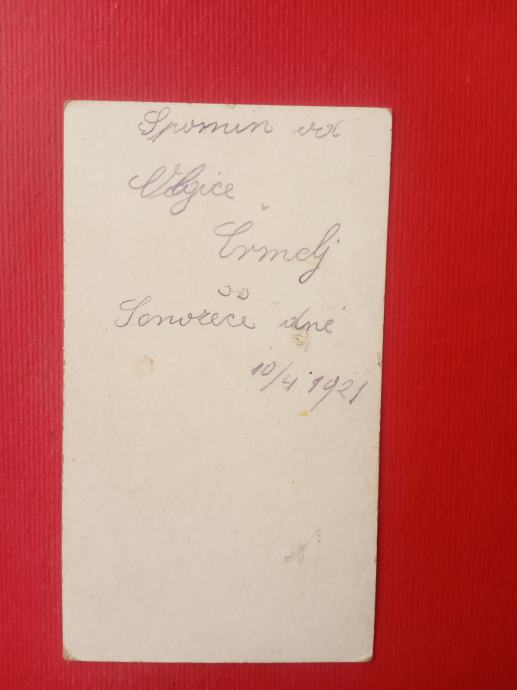 Spomin od
Olgice
Črmelj
Senožeče dné
10/4 1921